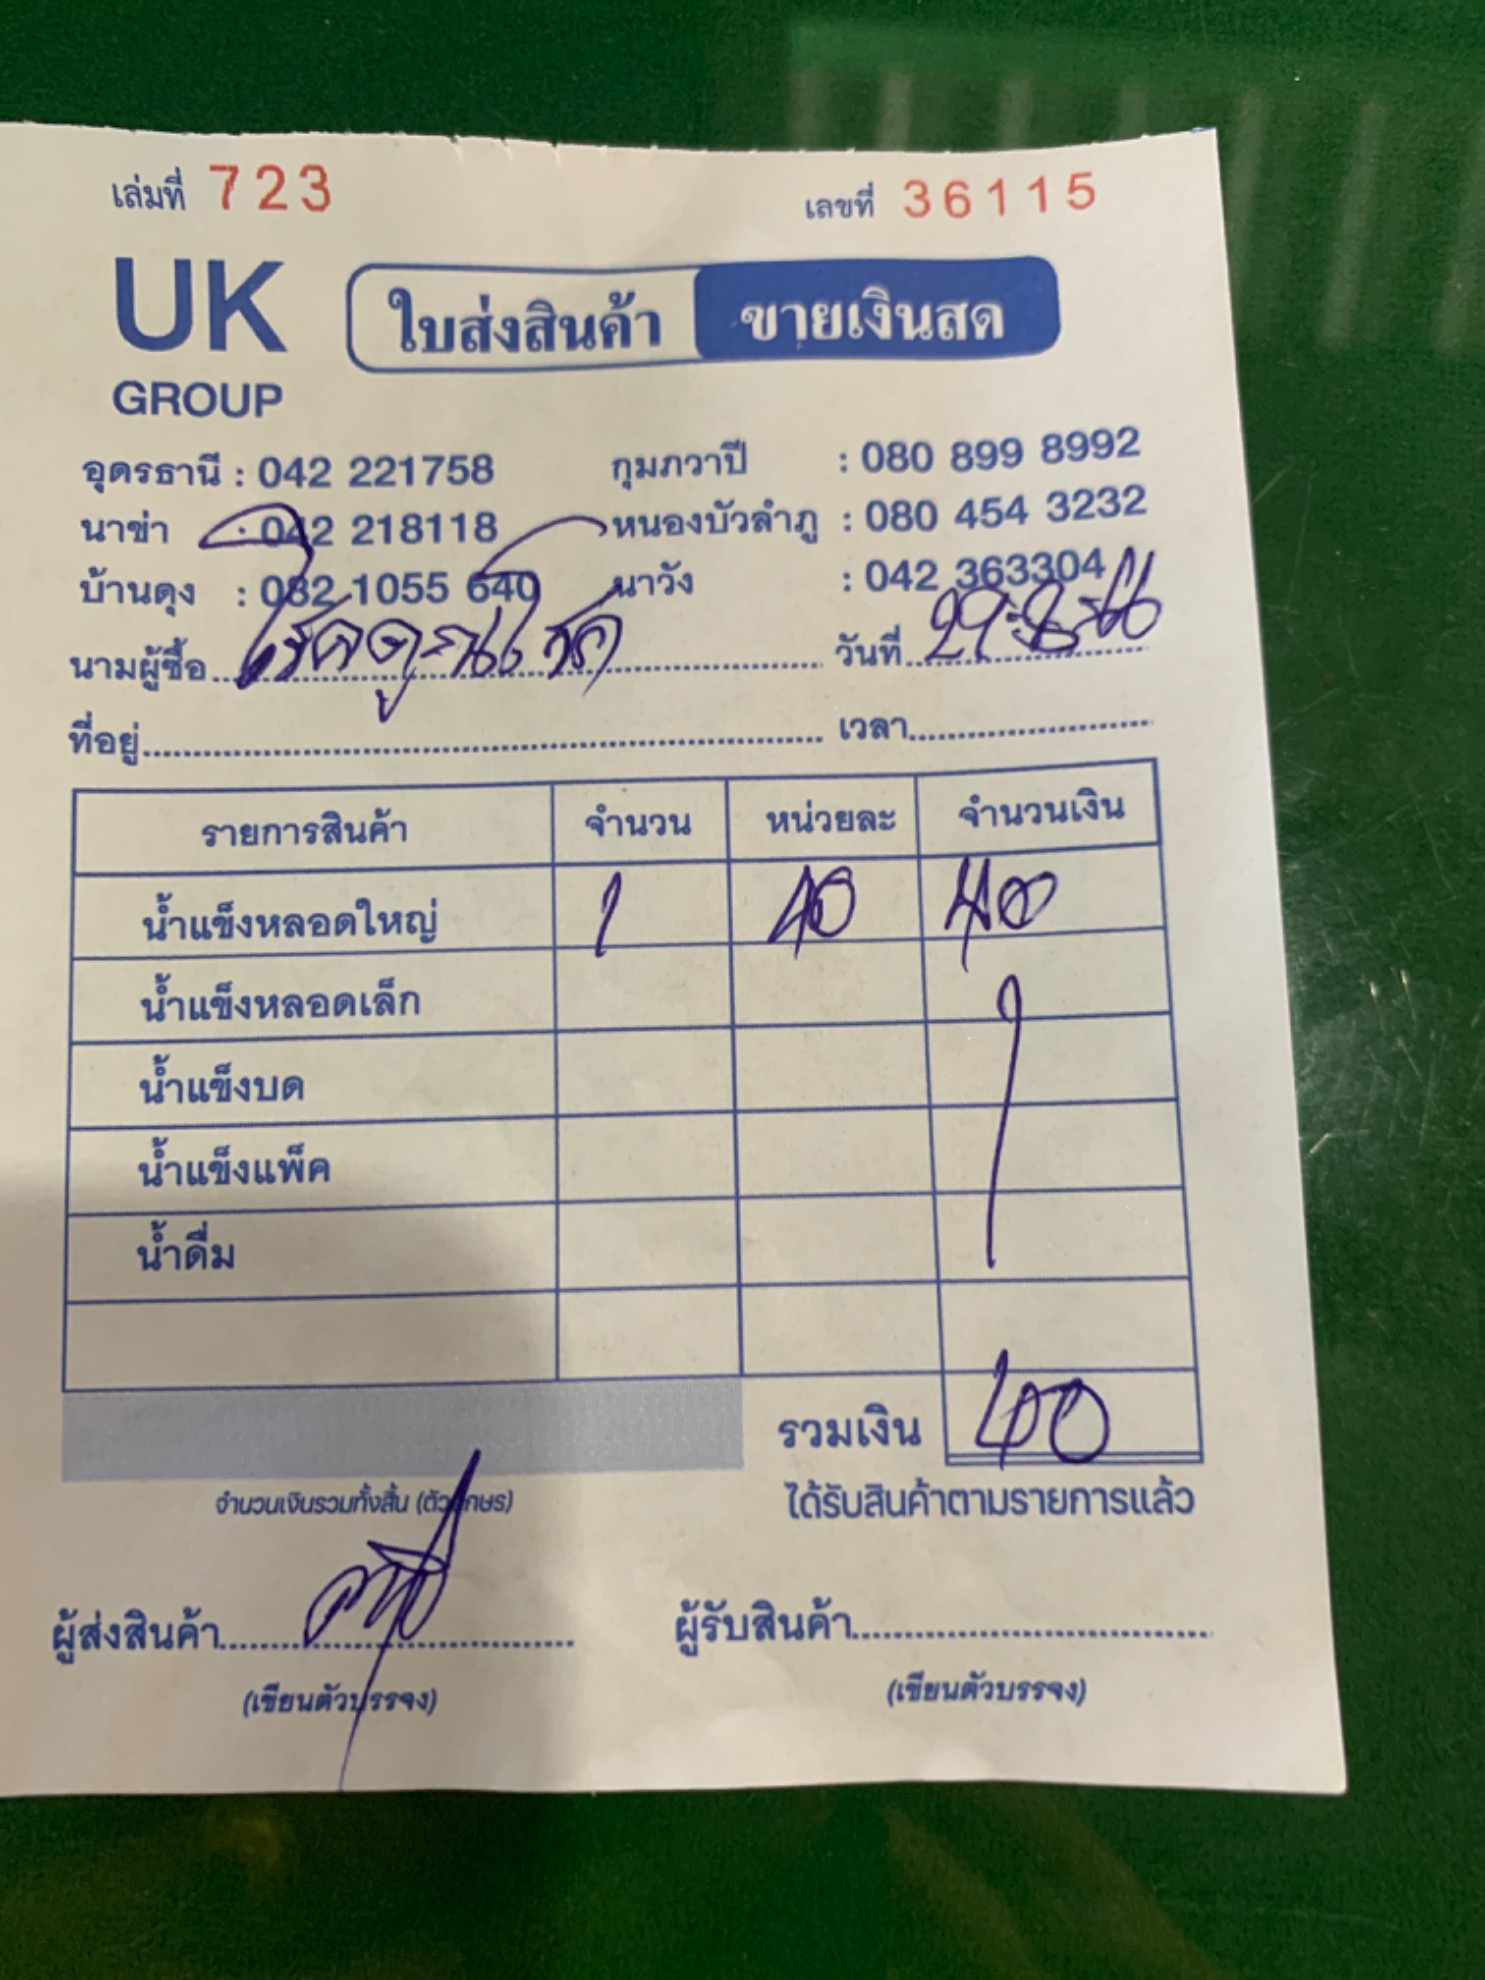 เล่มที่ 723 เลขที่ 36115
UK GROUP ใบส่งสินค้า ขายเงินสด
อุดรธานี : 042 221758 กุมภวาปี : 080 899 8992
นาข่า : 042 218118 หนองบัวลำภู : 080 454 3232
บ้านดุง : 082 1055 640 นาวัง : 042 363304
นามผู้ซื้อ วันที่ 29-8-
ที่อยู่ เวลา
รายการสินค้า จำนวน หน่วยละ จำนวนเงิน
น้ำแข็งหลอดใหญ่ 1 40 40
น้ำแข็งหลอดเล็ก
น้ำแข็งบด
น้ำแข็งแพ็ค
น้ำดื่ม
รวมเงิน 40
จำนวนเงินรวมทั้งสิ้น (ตัวอักษร) ได้รับสินค้าตามรายการแล้ว
ผู้ส่งสินค้า ผู้รับสินค้า
(เขียนตัวบรรจง) (เขียนตัวบรรจง)